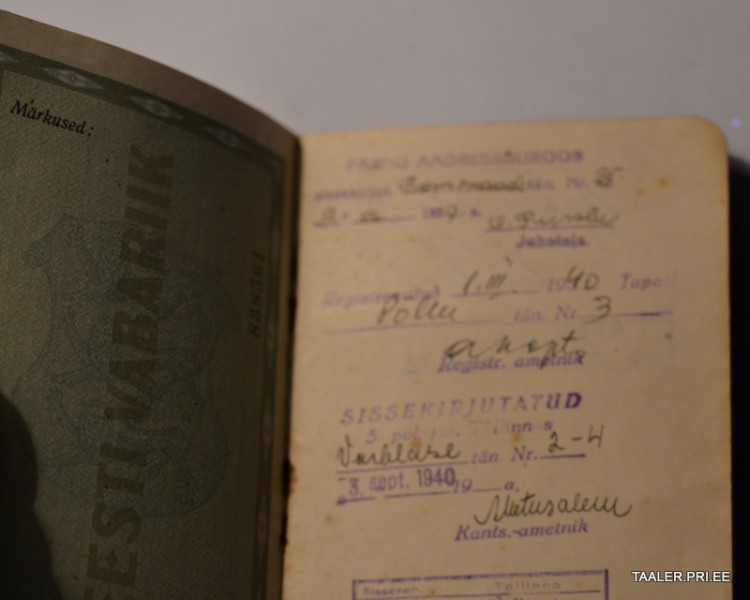 Märkused:
EESTI VABARIIK
PÄRNU AADRESSBÜROOS
sissekirjut. tän. Nr.
19 a.
Juhataja
Registreeritud 1.III. 1940 Tapal
Põllu tän. Nr. 3
Registr. ametnik
SISSEKIRJUTATUD
5 Tallinnas
tän. Nr. 2-4
3. sept. 1940 19 a.
Metusalem
Kants.-ametnik
Sissereg. Tallinna
TAALER.PRI.EE